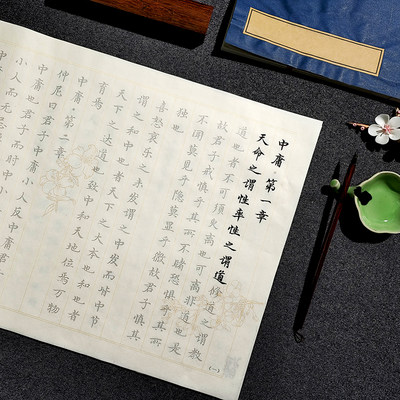 中庸 第一章
天命之谓性率性之谓道修道之谓教
道也者不可须臾离也可离非道也是
故君子戒慎乎其所不睹恐惧乎其所
不闻莫见乎隐莫显乎微故君子慎其
独也
喜怒哀乐之未发谓之中发而皆中节
谓之和中也者天下之大本也和也者
天下之达道也致中和天地位焉万物
育焉
中庸 第二章
仲尼曰君子中庸小人反中庸君
中庸也君子而时中小
小人而无忌
中
(一)